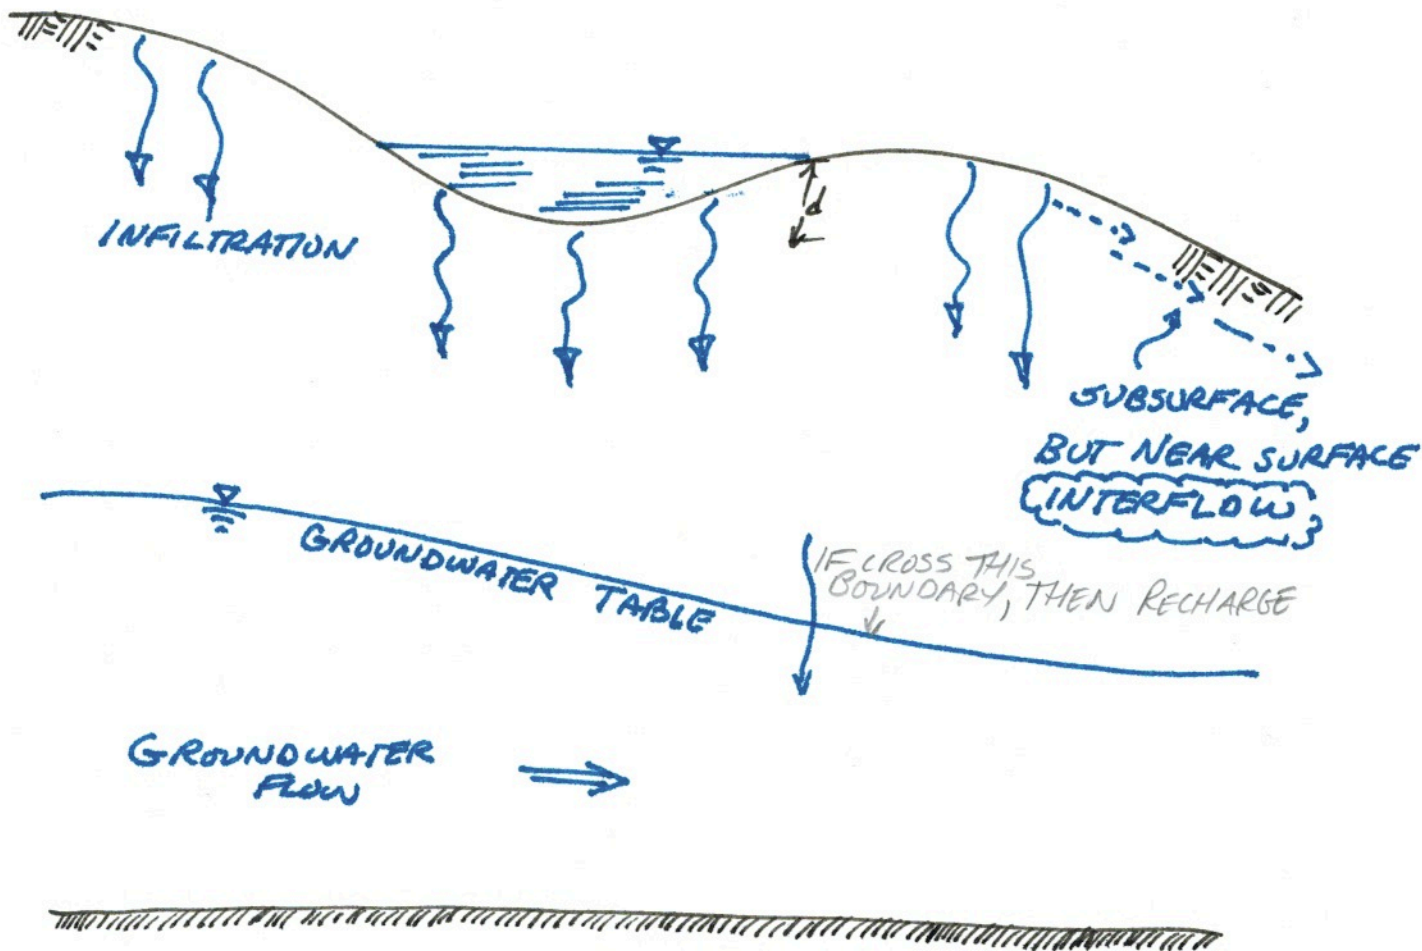 d
INFILTRATION
SUBSURFACE,
BUT NEAR SURFACE
INTERFLOW
GROUNDWATER TABLE
IF CROSS THIS
BOUNDARY, THEN RECHARGE
GROUNDWATER
FLOW